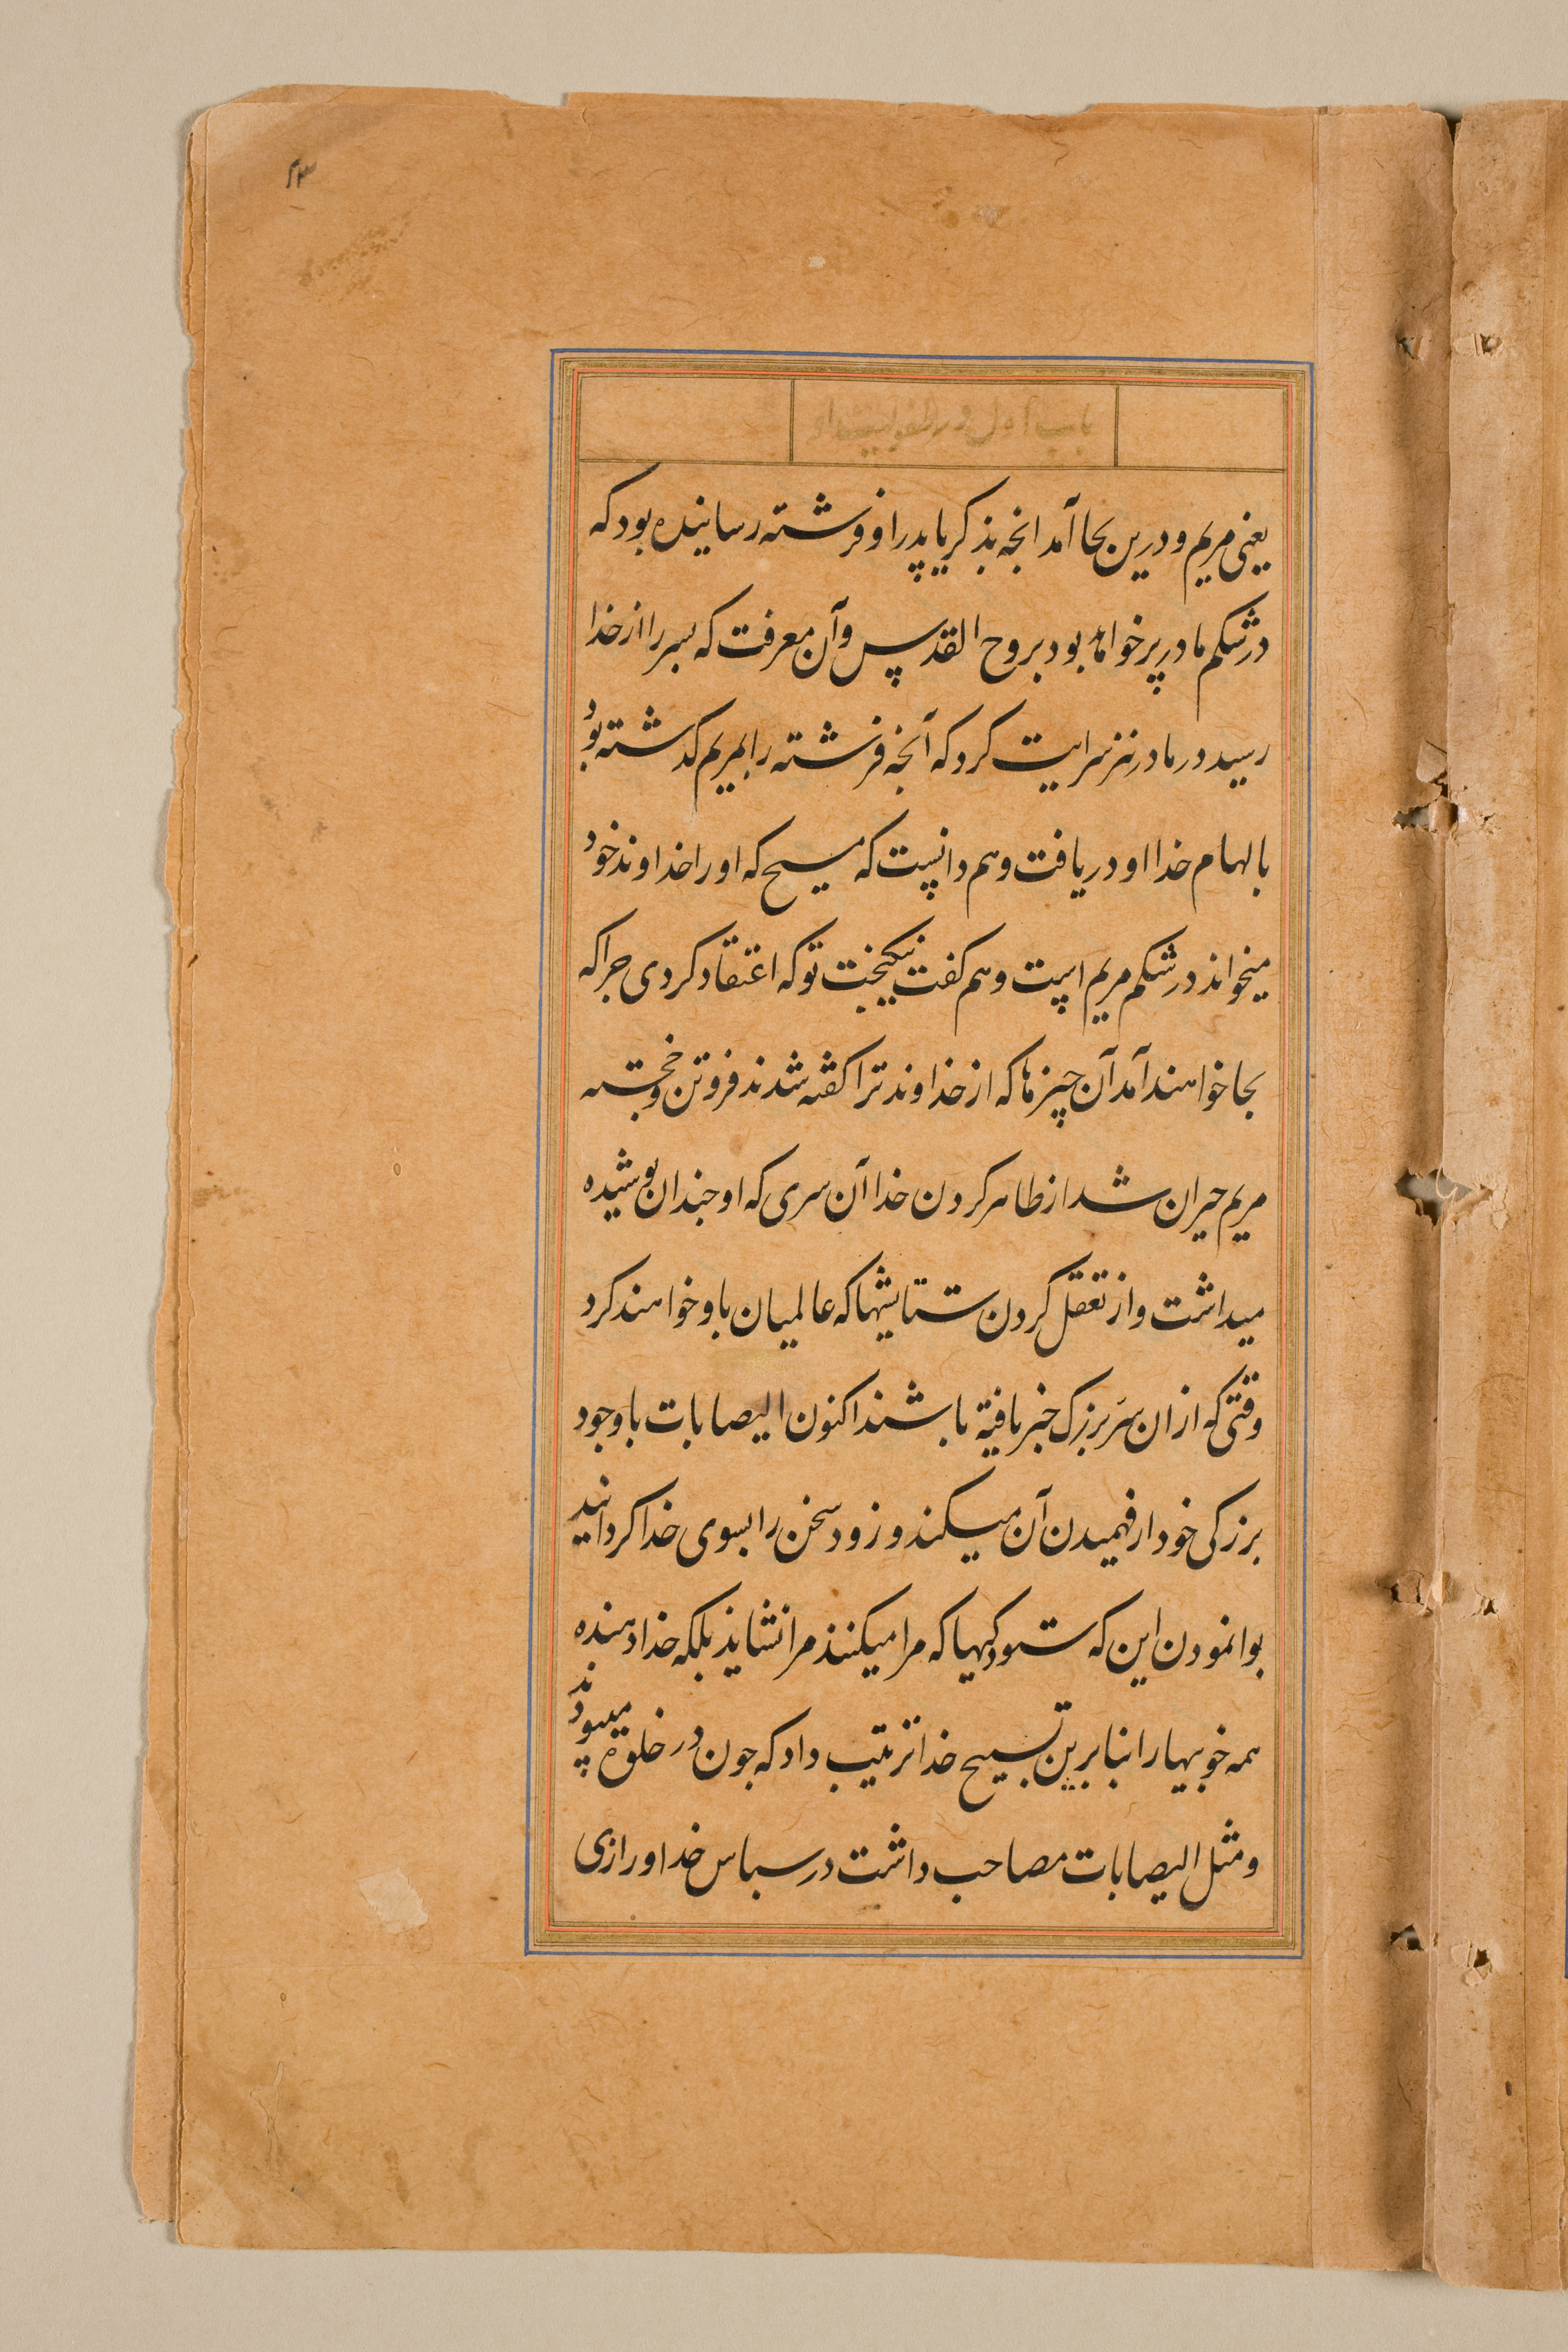 باب اول در طفولیت او
یعنی مریم و درین بجا آمد انچه بذکریا پدر او فرشته رسانیده بود که
در شکم مادر پر خواهد بود بروح القدس و آن معرفت که بسر را از خدا
رسید در مادر نیز سرایت کرد که آنچه فرشته را بمریم کذشته بود
بالهام خدا او دریافت و هم دانست که مسیح که او را خداوند خود
میخواند در شکم مریم است و هم کفت نیکبخت تو که اعتقاد کردی جراکه
بجا خواهند آمد آن چیزها که از خداوند ترا کفته شدند فروتن و خجسته
مریم حیران شد از ظاهر کردن خدا آن سری که او جندان بوشیده
میداشت و از تعقل کردن ستایشها که عالمیان باو خواهند کرد
وقتی که از ان سرّ بزرک خبر یافته باشند اکنون الیصابات باوجود
بزرکی خود ار فهمیدن آن میکند و زود سخن را بسوی خدا کردانید
بوانمودن این که ستودکیها که مرا میکنند مرا نشاید بلکه خدا دهنده
همه خوبیها را بنابرین تسبیح خدا ترتیب داد که جون در خلوة میبود
و مثل الیصابات مصاحب داشت در سباس خداوراازی
۲۳